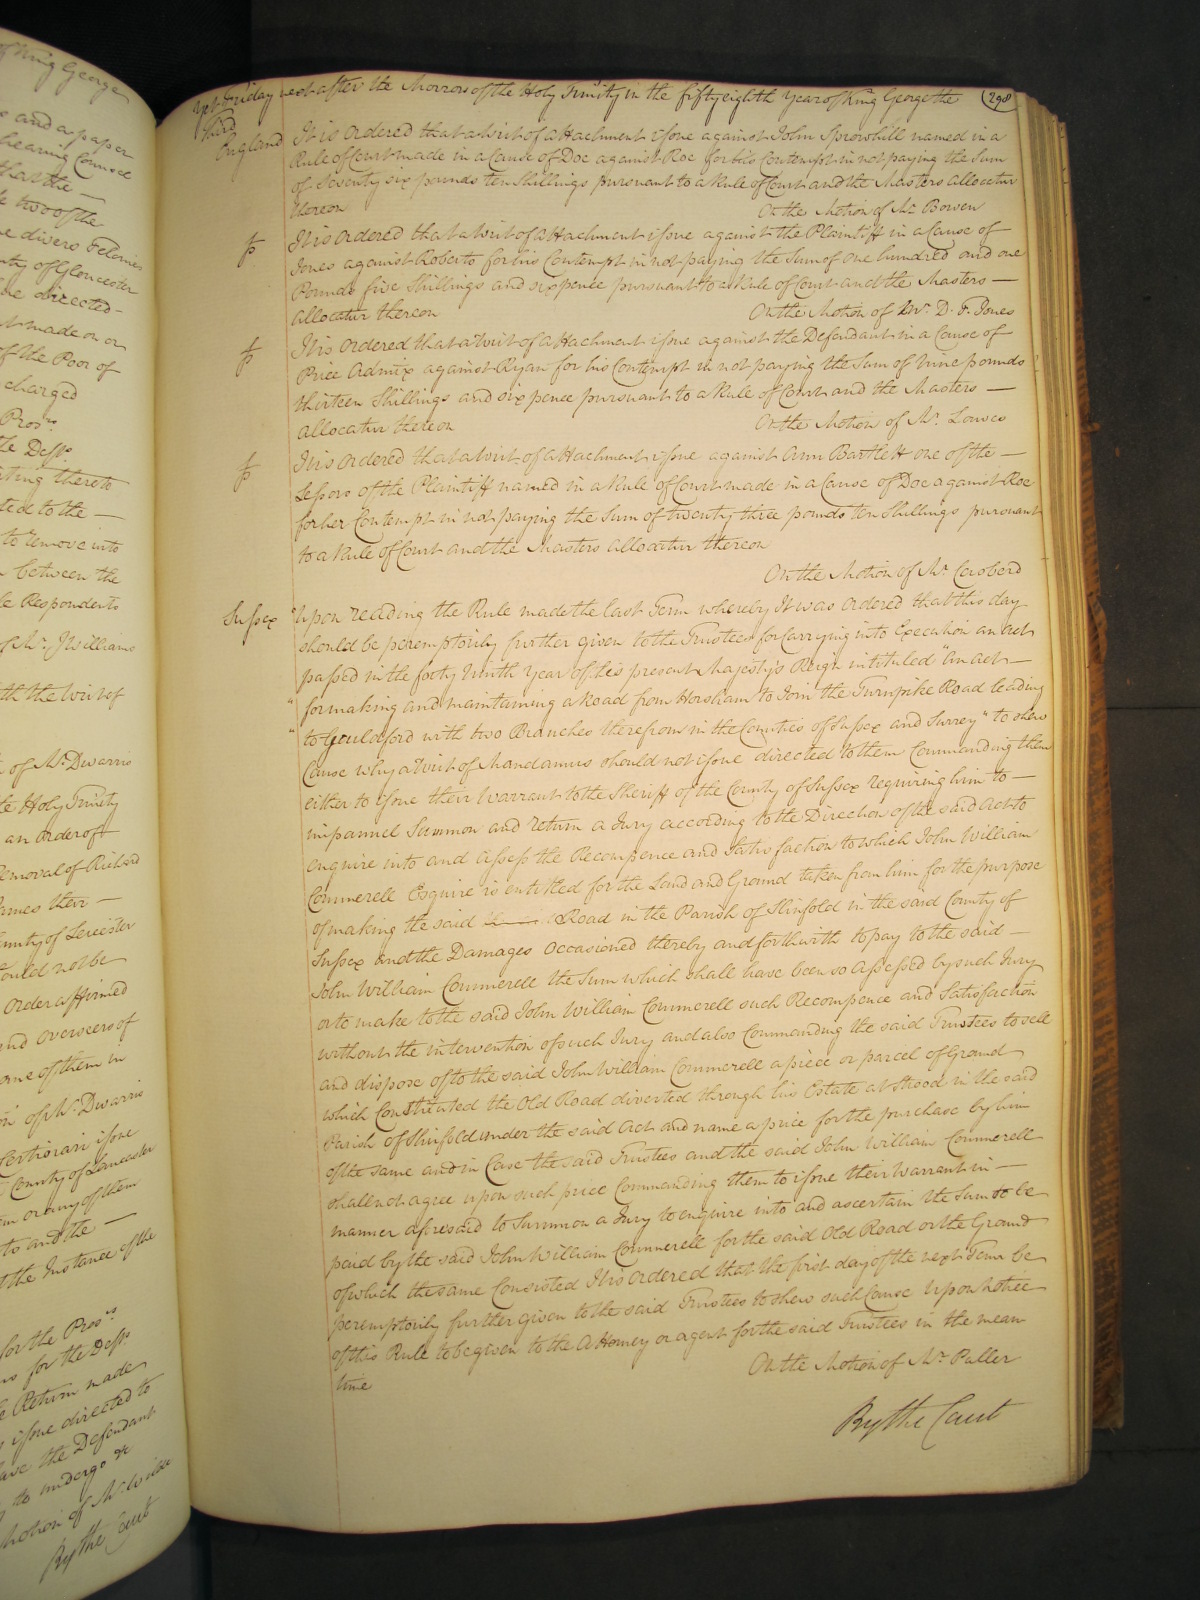 of King George
s and a paper
hearing Counsel
that the —
k two of the
me divers Felonies
nty of Gloucester
be directed -
t made on or
of the Poor of
charged
Pros.rs
the Defts.
ating thereto
ted to the —
to remove into
between the
the Respondents
of Mr. J Williams
ith the Writ of
of Mr. Dwarris
the Holy Trinity
an Order of
emoval of Richard
James their —
County of Leicester
could not be
Order affirmed
and Overseers of
ome of them in
on of Mr. Dwarris
Certiorari issue
County of Lancaster
em or any of them
to and the —
at the Instance of the
for the Pros.rs
for the Deft.
Return made
issue directed to
have the Defendant
to undergo &c
Motion of Mr.
By the Court
Yet Friday next after the Morrow of the Holy Trinity in the fifty eighth Year of King George the 298
third
England It is ordered that a Writ of attachment issue against John Sprowhill named in a
Rule of Court made in a Cause of Doe against Roe for his Contempt in not paying the Sum
of Seventy six pounds ten Shillings pursuant to a Rule of Court and the Masters allocatur
thereon On the Motion of Mr. Bowen
It is ordered that a Writ of attachment issue against the Plaintiff in a Cause of
Jones against Roberts for his Contempt in not paying the Sum of one hundred and one
Pounds five Shillings and sixpence pursuant to a Rule of Court and the Masters —
allocatur thereon On the Motion of Mr. D. F. Jones
It is ordered that a Writ of attachment issue against the Defendant in a Cause of
Price Admix against Ryan for his Contempt in not paying the Sum of Nine pounds
thirteen Shillings and sixpence pursuant to a Rule of Court and the Masters —
allocatur thereon On the Motion of Mr. Lawes
It is ordered that a Writ of attachment issue against Ann Bartlett one of the —
Lessors of the Plaintiff named in a Rule of Court made in a Cause of Doe against Roe
for her Contempt in not paying the Sum of twenty three pounds ten Shillings pursuant
to a Rule of Court and the Masters allocatur thereon
On the Motion of Mr.
Sussex Upon reading the Rule made the last Term whereby It was ordered that this day
should be peremptorily further given to the Trustees for carrying into Execution an act
passed in the forty Ninth Year of his present Majesty's Reign intituled "An act —
" for making and maintaining a Road from Horsham to Join the Turnpike Road leading
" to Guildford with two Branches therefrom in the Counties of Sussex and Surrey" to shew
Cause why a Writ of Mandamus should not issue directed to them Commanding them
either to issue their Warrant to the Sheriff of the County of Sussex requiring him to —
impannel Summon and return a Jury according to the Direction of the said Act to
enquire into and assess the Recompence and Satisfaction to which John William
Commerell Esquire is entitled for the Land and Ground taken from him for the purpose
of making the said Road in the Parish of Slinfold in the said County of
Sussex and the Damages occasioned thereby and forthwith to pay to the said —
John William Commerell the Sum which shall have been so assessed by such Jury
or to make to the said John William Commerell such Recompence and Satisfaction
without the intervention of such Jury and also Commanding the said Trustees to sell
and dispose of to the said John William Commerell a piece or parcel of Ground
which Constituted the Old Road diverted through his Estate at Strood in the said
Parish of Slinfold under the said Act and name a price for the purchase by him
of the same and in Case the said Trustees and the said John William Commerell
shall not agree upon such price Commanding them to issue their Warrant in —
manner aforesaid to Summon a Jury to enquire into and ascertain the Sum to be
paid by the said John William Commerell for the said Old Road or the Ground
of which the same Consisted It is Ordered that the first day of the next Term be
peremptorily further given to the said Trustees to shew such Cause Upon Notice
of this Rule to be given to the Attorney or agent for the said Trustees in the mean
time On the Motion of Mr. Puller
By the Court